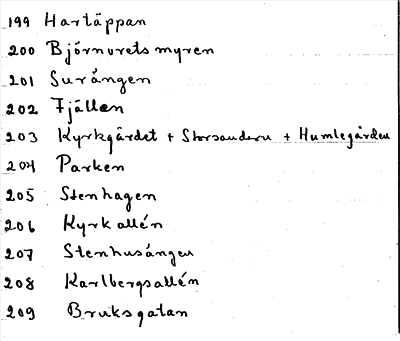 199 Hartäppan
200 Björnvretsmyren
201 Surängen
202 Fjällen
203 Kyrkgärdet + Storsanden + Humlegården
204 Parken
205 Stenhagen
206 Kyrkallén
207 Stenhusängen
208 Karlbergsallén
209 Bruksgatan